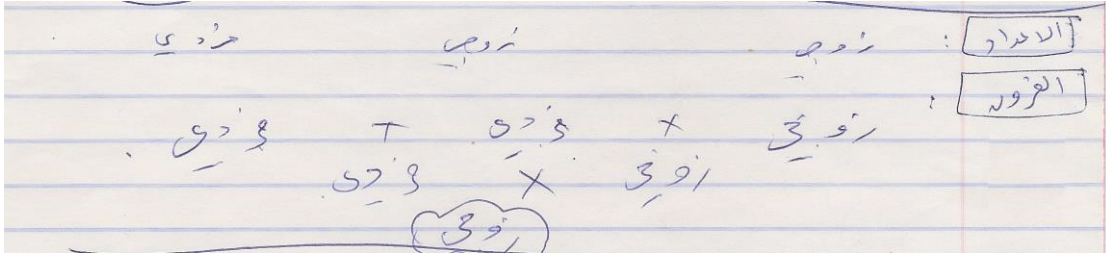 الاعداد : زوجي زوجي فردي
الفروق :
زوجي × فردي + فردي .
زوجي × فردي
زوجي